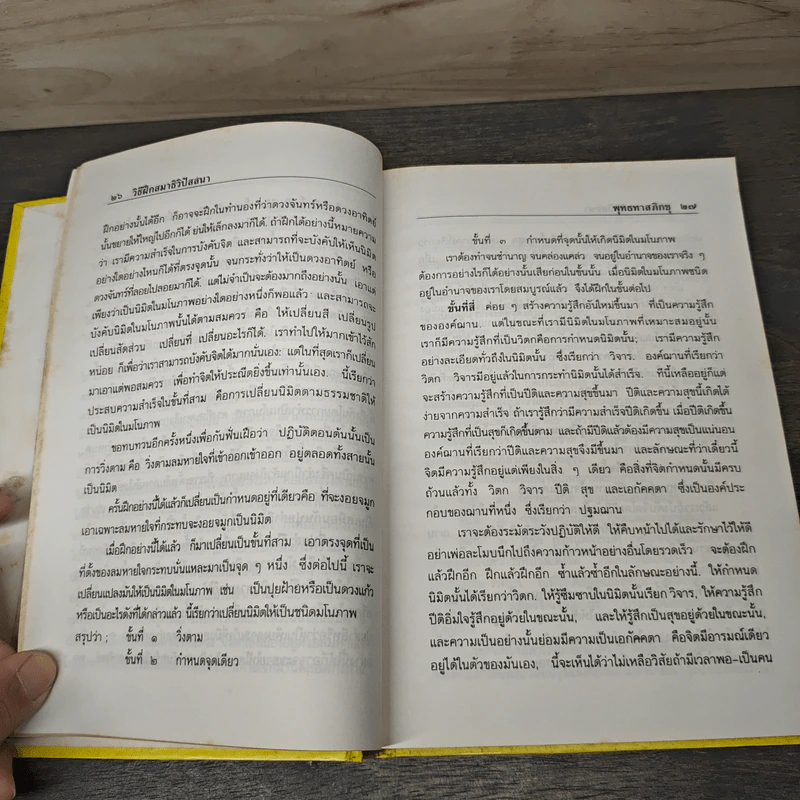 ๒๖ วิธีฝึกสมาธิวิปัสสนา
ฝึกอย่างนั้นได้อีก ก็อาจจะฝึกในทำนองที่ว่าดวงจันทร์หรือดวงอาทิตย์
นั้นขยายให้ใหญ่ไปอีกก็ได้ ย่นให้เล็กลงมาก็ได้. ถ้าฝึกได้อย่างนี้หมายความ
ว่า เรามีความสำเร็จในการบังคับจิต และสามารถที่จะบังคับให้เห็นนิมิต
อย่างใดอย่างไหนก็ได้ที่ตรงจุดนั้น จนกระทั่งว่าให้เป็นดวงอาทิตย์ หรือ
ดวงจันทร์ที่ลอยไปลอยมาก็ได้. แต่ไม่จำเป็นจะต้องมากถึงอย่างนั้น เอาแต่
เพียงว่าเป็นนิมิตในมโนภาพอย่างใดอย่างหนึ่งก็พอแล้ว และสามารถจะ
บังคับนิมิตในมโนภาพนั้นได้ตามสมควร คือ ให้เปลี่ยนสี เปลี่ยนรูป
เปลี่ยนสัดส่วน เปลี่ยนที่ เปลี่ยนอะไรก็ได้. เราทำไปให้มากเข้าไว้สัก
หน่อย ก็เพื่อว่าเราสามารถบังคับจิตได้มากนั่นเอง: แต่ในที่สุดเราก็เปลี่ยน
มาเอาแต่พอสมควร เพื่อทำจิตให้ประณีตยิ่งขึ้นเท่านั้นเอง. นี้เรียกว่า
ประสบความสำเร็จในขั้นที่สาม คือการเปลี่ยนนิมิตตามธรรมชาติให้
เป็นนิมิตในมโนภาพ
ขอทบทวนอีกครั้งหนึ่งเพื่อกันฟั่นเฝือว่า ปฏิบัติตอนต้นนั้นเป็น
การวิ่งตาม คือ วิ่งตามลมหายใจที่เข้าออกเข้าออก อยู่ตลอดทั้งสายนั้น
เป็นนิมิต
ครั้นฝึกอย่างนี้ได้แล้วก็เปลี่ยนเป็นกำหนดอยู่ที่เดียวคือ ที่จะงอยจมูก
เอาเฉพาะลมหายใจที่กระทบจะงอยจมูกเป็นนิมิต
เมื่อฝึกอย่างนี้ได้แล้ว ก็มาเปลี่ยนเป็นขั้นที่สาม เอาตรงจุดที่เป็น
ที่ตั้งของลมหายใจกระทบนั่นแหละมาเป็นจุด ๆ หนึ่ง ซึ่งต่อไปนี้ เราจะ
เปลี่ยนแปลงมันให้เป็นนิมิตในมโนภาพ เช่น เป็นปุยฝ้ายหรือเป็นดวงแก้ว
หรือเป็นอะไรดังที่ได้กล่าวแล้ว นี้เรียกว่าเปลี่ยนนิมิตให้เป็นชนิดมโนภาพ
สรุปว่า ; ขั้นที่ ๑ วิ่งตาม
ขั้นที่ ๒ กำหนดจุดเดียว
พุทธทาสภิกขุ ๒๗
ขั้นที่ ๓ กำหนดที่จุดนั้นให้เกิดนิมิตในมโนภาพ
เราต้องทำจนชำนาญ จนคล่องแคล่ว จนอยู่ในอำนาจของเราจริง ๆ
ต้องการอย่างไรก็ได้อย่างนั้นเสียก่อนในขั้นนั้น เมื่อนิมิตในมโนภาพชนิด
อยู่ในอำนาจของเราโดยสมบูรณ์แล้ว จึงได้ฝึกในขั้นต่อไป
ขั้นที่สี่ ค่อย ๆ สร้างความรู้สึกอันใหม่ขึ้นมา ที่เป็นความรู้สึก
ขององค์ฌาน. แต่ในขณะที่เรามีนิมิตในมโนภาพที่เหมาะสมอยู่นั้น
เราก็มีความรู้สึกที่เป็นวิตกคือการกำหนดนิมิตนั้น; เรามีความรู้สึก
อย่างละเอียดทั่วถึงในนิมิตนั้น ซึ่งเรียกว่า วิจาร. องค์ฌานที่เรียกว่า
วิตก วิจารมีอยู่แล้วในการกระทำนิมิตนั้นได้สำเร็จ. ทีนี้เหลืออยู่ก็แต่
จะสร้างความรู้สึกที่เป็นปีติและความสุขขึ้นมา ปีติและความสุขนี้เกิดได้
ง่ายจากความสำเร็จ ถ้าเรารู้สึกว่ามีความสำเร็จปีติเกิดขึ้น เมื่อปีติเกิดขึ้น
ความรู้สึกที่เป็นสุขก็เกิดขึ้นตาม และถ้ามีปีติแล้วต้องมีความสุขเป็นแน่นอน
องค์ฌานที่เรียกว่าปีติและความสุขจึงมีขึ้นมา และลักษณะที่ว่าเดี๋ยวนี้
จิตมีความรู้สึกอยู่แต่เพียงในสิ่ง ๆ เดียว คือสิ่งที่จิตกำหนดนั้นมีครบ
ถ้วนแล้วทั้ง วิตก วิจาร ปีติ สุข และเอกัคคตา ซึ่งเป็นองค์ประ
กอบของฌานที่หนึ่ง ซึ่งเรียกว่า ปฐมฌาน
เราจะต้องระมัดระวังปฏิบัติให้ดี ให้คืบหน้าไปได้และรักษาไว้ให้ดี
อย่าเพ่อละโมบนึกไปถึงความก้าวหน้าอย่างอื่นโดยรวดเร็ว จะต้องฝึก
แล้วฝึกอีก ฝึกแล้วฝึกอีก ซ้ำแล้วซ้ำอีกในลักษณะอย่างนี้. ให้กำหนด
นิมิตนั้นได้เรียกว่าวิตก. ให้รู้ซึมซาบในนิมิตนั้นเรียก วิจาร, ให้ความรู้สึก
ปีติอิ่มใจรู้สึกอยู่ด้วยในขณะนั้น, และให้รู้สึกเป็นสุขอยู่ด้วยในขณะนั้น,
และความเป็นอย่างนั้นย่อมมีความเป็นเอกัคคตา คือจิตมีอารมณ์เดียว
อยู่ได้ในตัวของมันเอง, นี้จะเห็นได้ว่าไม่เหลือวิสัยถ้ามีเวลาพอ–เป็นคน